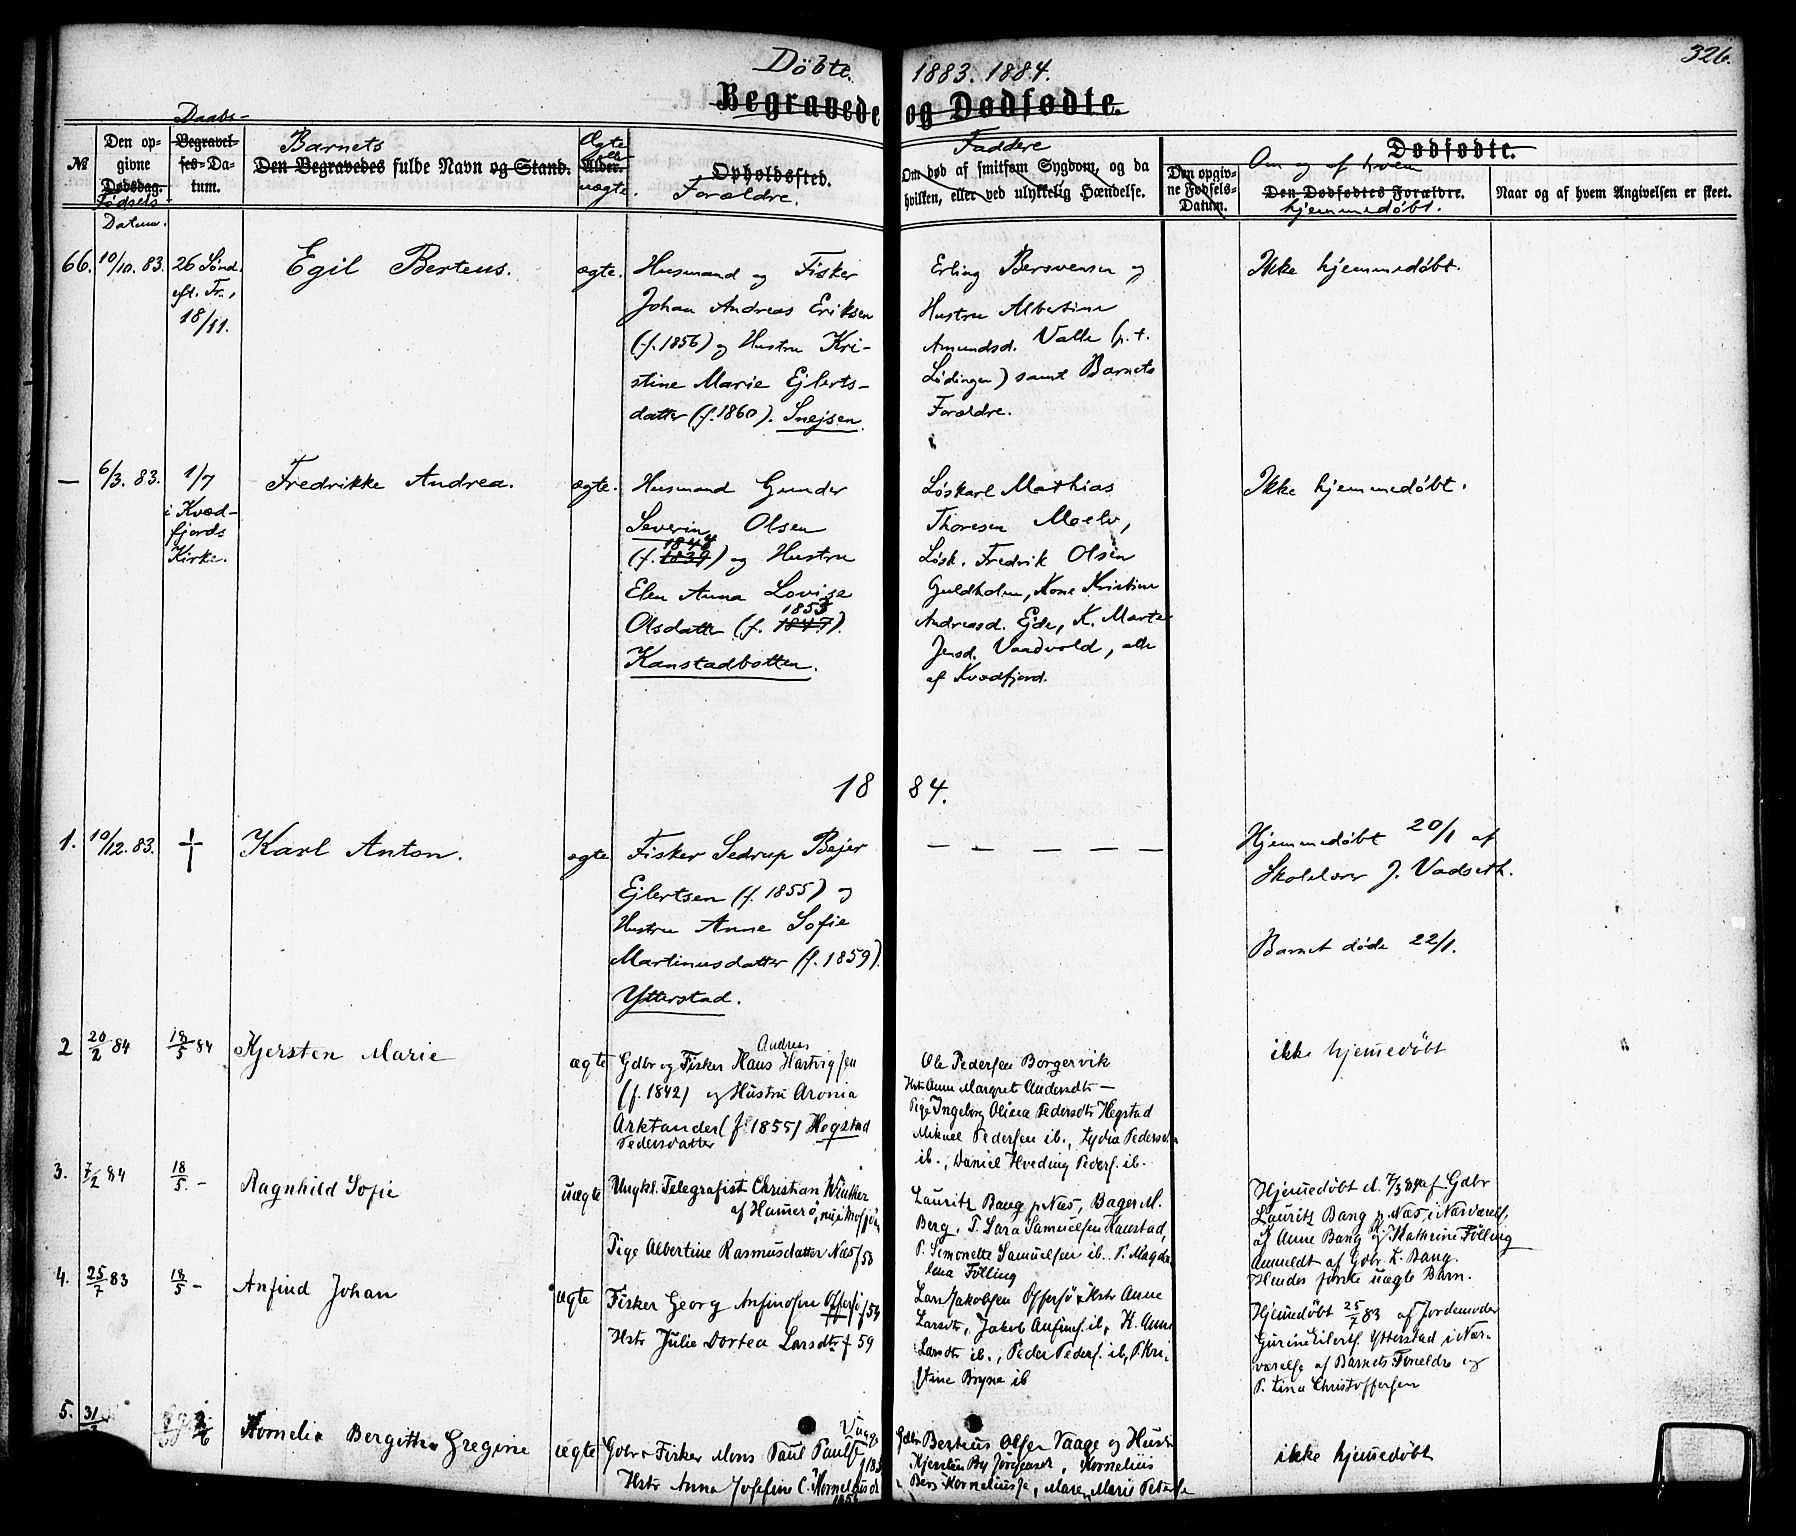 326.
Døbte. 1883. 1884.
Begravede og Dødfødte.
Daabs-
Barnets
Ægte
eller
uægte.
Faddere
Dødfødte.
Om og af hvem
№
Den op-
givne
Dødsdag.
Fødsels
Datum.
Begravel-
ses-Da-
tum.
Den Begravedes fulde Navn og Stand.
Alder.
Opholdssted.
Forældre.
Om død af smitsom Sygdom, og da
hvilken, eller ved ulykkelig Hændelse.
Den opgiv-
ne Fødsels-
Datum.
Den Dødfødtes Forældre.
hjemmedøbt.
Naar og af hvem Angivelsen er skeet.
66.
10/10. 83.
26 Sønd.
eft. Tr.,
18/11.
Egil Berteus.
ægte.
Husmand og Fisker
Johan Andreas Eriksen
(f. 1856) og Hustru Kri-
stine Marie Ejlerts-
datter (f. 1860). Snejsen.
Erling Bersvensen og
Hustru Albertine
Amundsd. Valle (p. t.
Lødingen) samt Barnets
Forældre.
Ikke hjemmedøbt.
—
6/3. 83.
1/7
i Kvæd-
fjords
Kirke.
Fredrikke Andrea.
ægte.
Husmand Gunder
Severin Olsen
1848
(f. 1839) og Hustru
Elen Anna Lovise
1853
Olsdatter (f. 1847).
Kanstadbotten.
Løskarl Mathias
Thoresen Moelv,
Løsk. Fredrik Olsen
Guldholm, Kone Kristine
Andreasd. Ejde, K. Marta
Jensd. Vaadvold, alle
af Kvædfjord.
Ikke hjemmedøbt.
1884.
1.
10/12. 83.
†
Karl Anton.
ægte
Fisker Sedrup Bejer
Ejlertsen (f. 1855) og
Hustru Anne Sofie
Martinusdatter (f. 1859).
Ytterstad.
— — — — —
Hjemmedøbt 20/1 af
Skolelærer J. Vadseth.
Barnet døde 22/1.
2
20/2 84
18/5 84
Kjersten Marie
ægte
Andreas
Gdbr og Fisker Hans Hartvigsen
(f. 1842) og Hustru Aronia
Arktander (f. 1855) Hegstad
Pedersdatter
Ole Pedersen Borgervik
Hstr Anne Margrete Andersdtr —
Pige Ingeborg Olina Pedersdtr Hegstad
Mikael Pedersen ib., Lydia Peders
ib., Daniel Hveding Peders. ib.
ikke hjemedøbt
3.
7/2 84
18/5. -
Ragnhild Sofie
uægte
Ungkl. Telegrafist Christian Winther
af Hamerø,
Pige Albertine Rasmusdatter Næs f 53
Lauritz Bang p Næs, Bager M.
Berg. P. Sara Samuelsen Kanstad,
P. Simonette Samuelsen ib. P. Magda
lena Følling
Hjemedøbt d. 7/3 84 af Gdbr
Lauritz Bang p. Næs i Nærværelse
af Anne Bang og Kathrine Følling
Anmeldt af Gdbr L. Bang.
Hendes første uægte Barn.
4.
25/7 83
18/5 -
Anfind Johan
ægte
Fisker Georg Anfinsen Offersø f 54
Hstr Julie Dortea Larsdtr f 59
Lars Jakobsen Offersø & Hstr Anne
Larsdtr, Jakob Anfins. ib, K. Anne
Larsdtr ib., Peder Peders. ib, P. Kri-
stine Bryne ib
Hjemedøbt 25/7 83 af Jordemoder
Gurine Eilerts. Ytterstad i Nær-
værelse af Barnets Forældre og
P. Lina Christoffersen
5.
31
Kornelia Bergitha Gregine
ægte
Vaage
Gdbr & Fisker Mons Paul Pauls
Hstr Anna Josefine C. Kornelius
Gdbr Berteus Olsen Vaage og Hustr
Kjersten By Jørgensdtr, Kornelius
Bers Korneliuss, Maren Marie Peters
ikke hjemedøbt